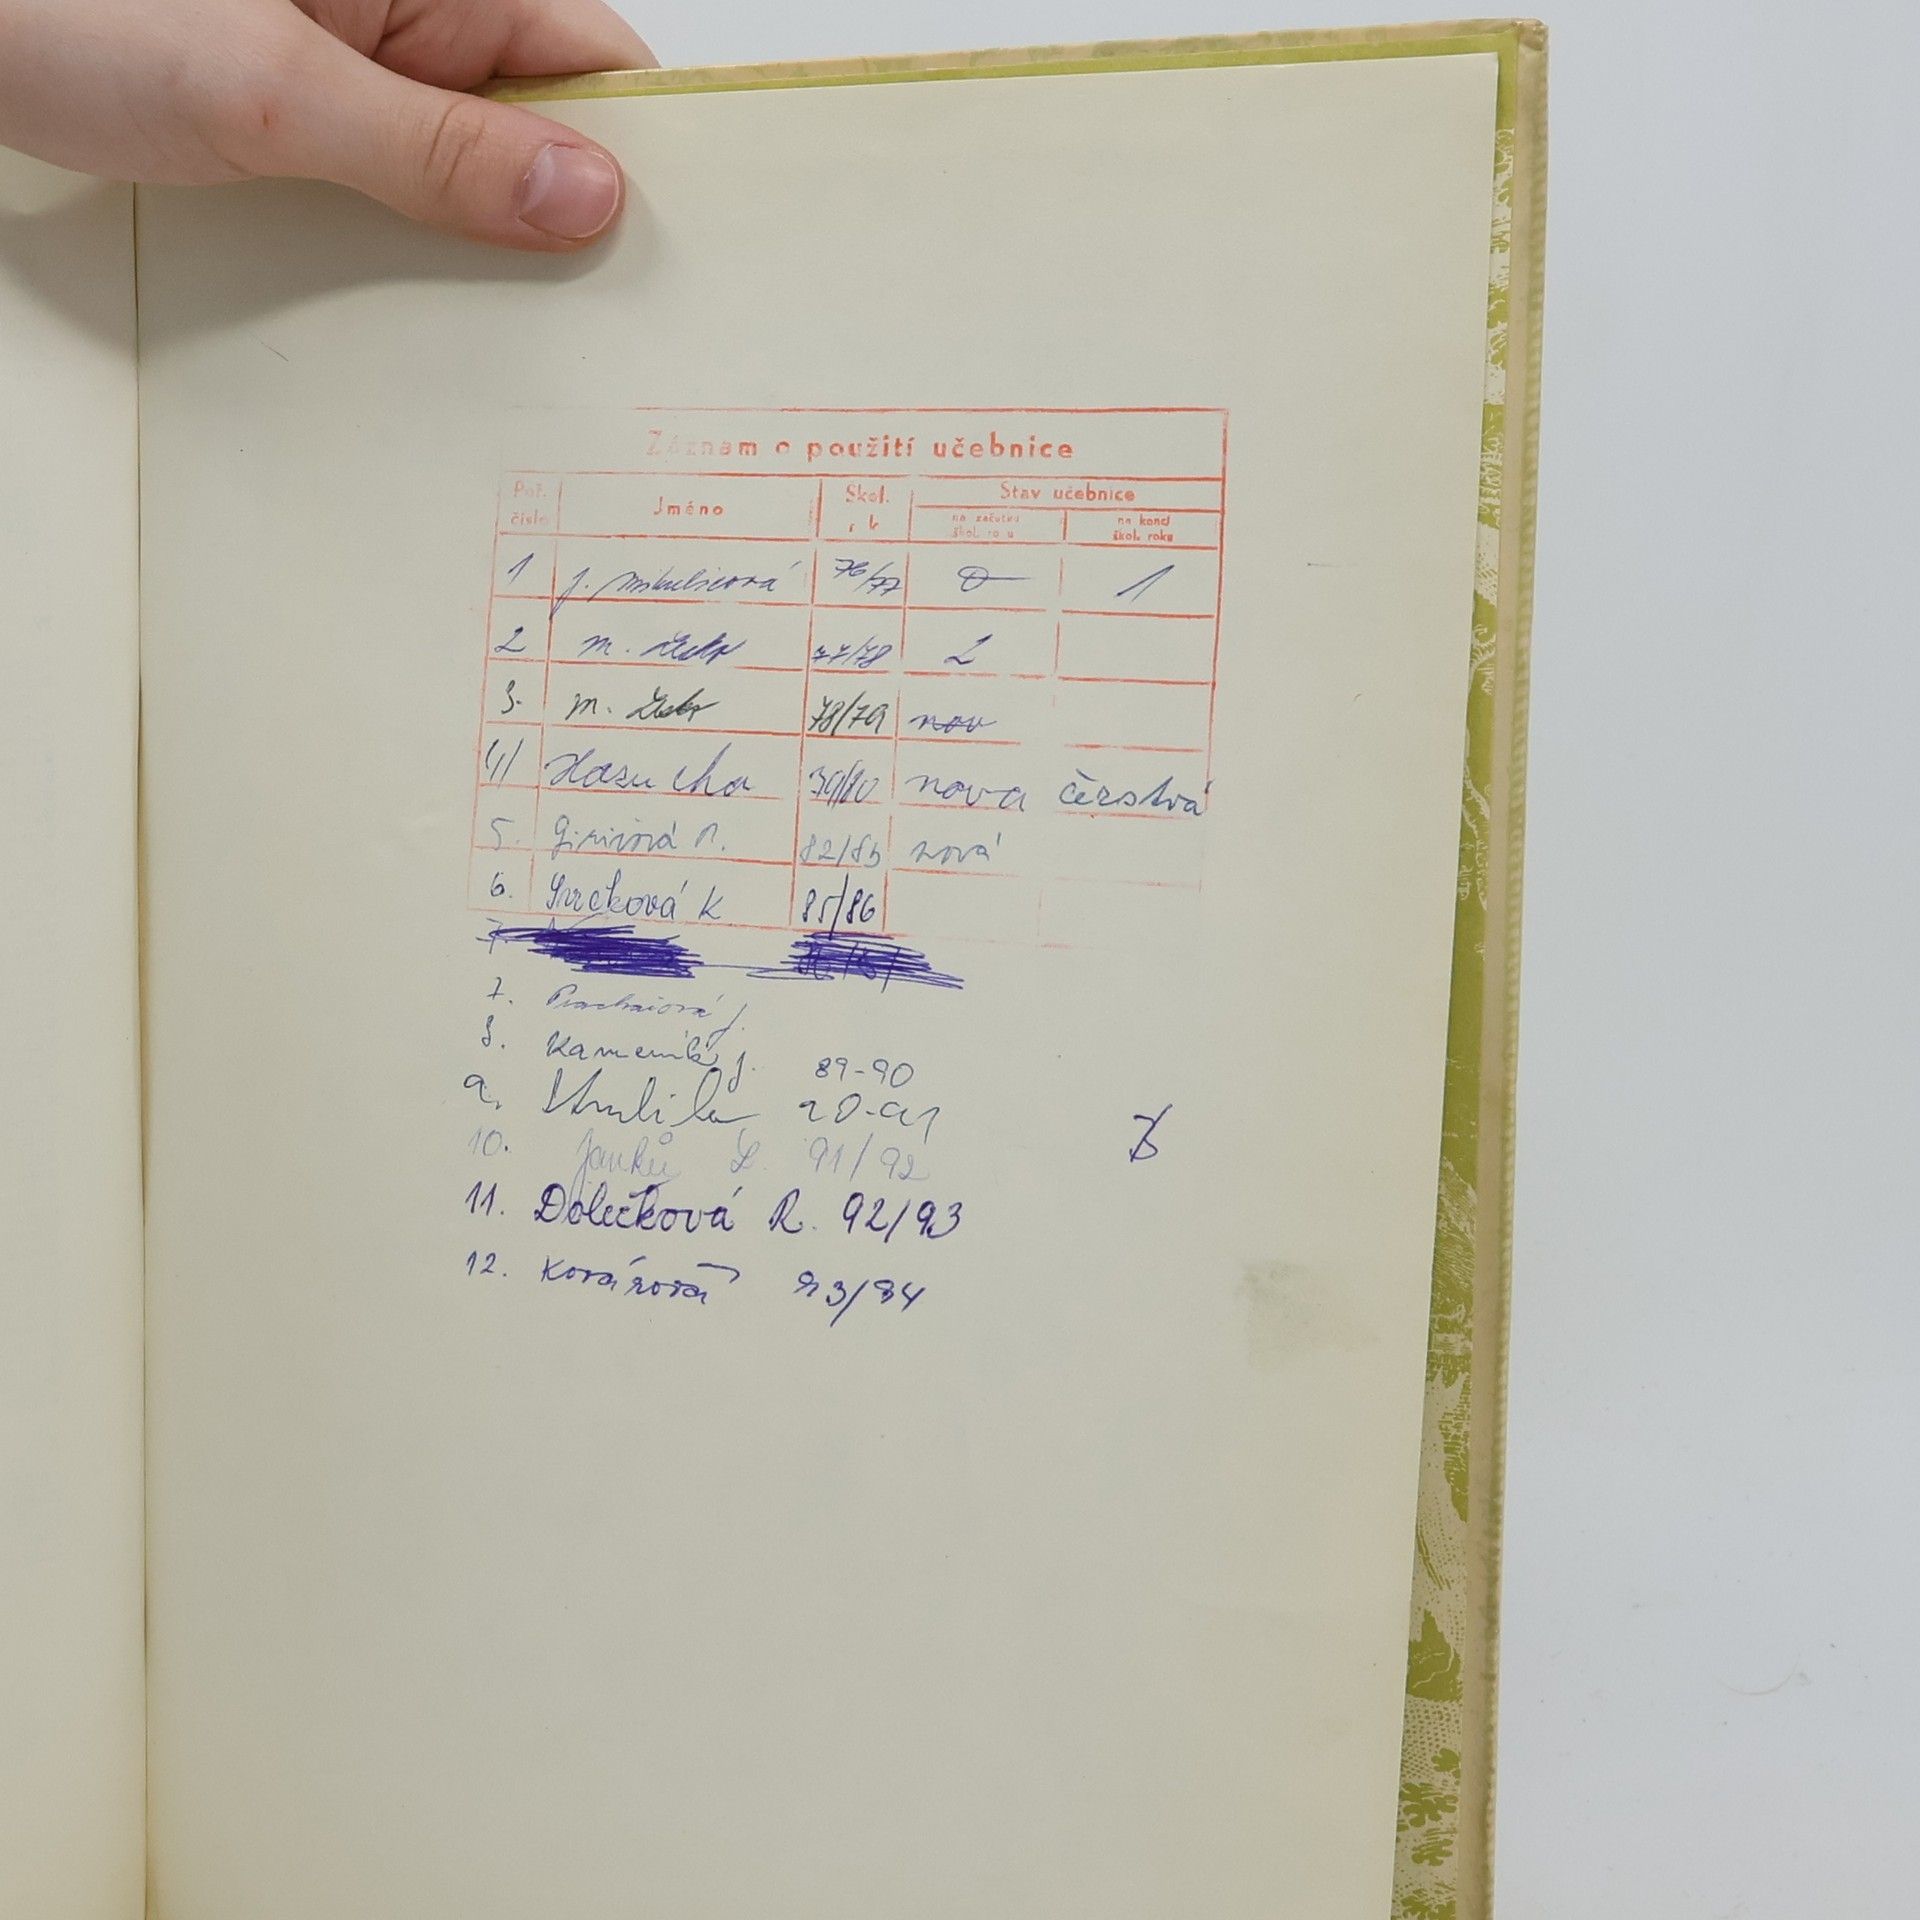 Záznam o použití učebnice
Poř. číslo Jméno Škol. r k Stav učebnice
na začátku škol. ro u na konci škol. roku
1 J. Mikulicová 76/77 0 1
2 M. 77/78 2
3. M. 78/79 nov
4/ Hasucha 79/80 nova čerstvá
5. 82/83 nová
6. K 85/86
7.
7. J.
8. Kameník J. 89-90
9. 90-91
10. Janků L. 91/92
11. Dolečková R. 92/93
12. Kovářová 93/94